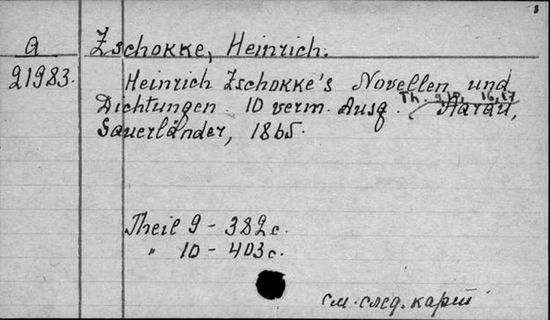 8
A Zschokke, Heinrich.
21983. Heinrich Zschokke's Novellen und
Dichtungen. 10 verm. Ausg. Th. 9, 10, 16, 17 Aarau,
Sauerländer, 1865.
Theil 9 – 382 c.
" 10 – 403 c.
см. след. карт